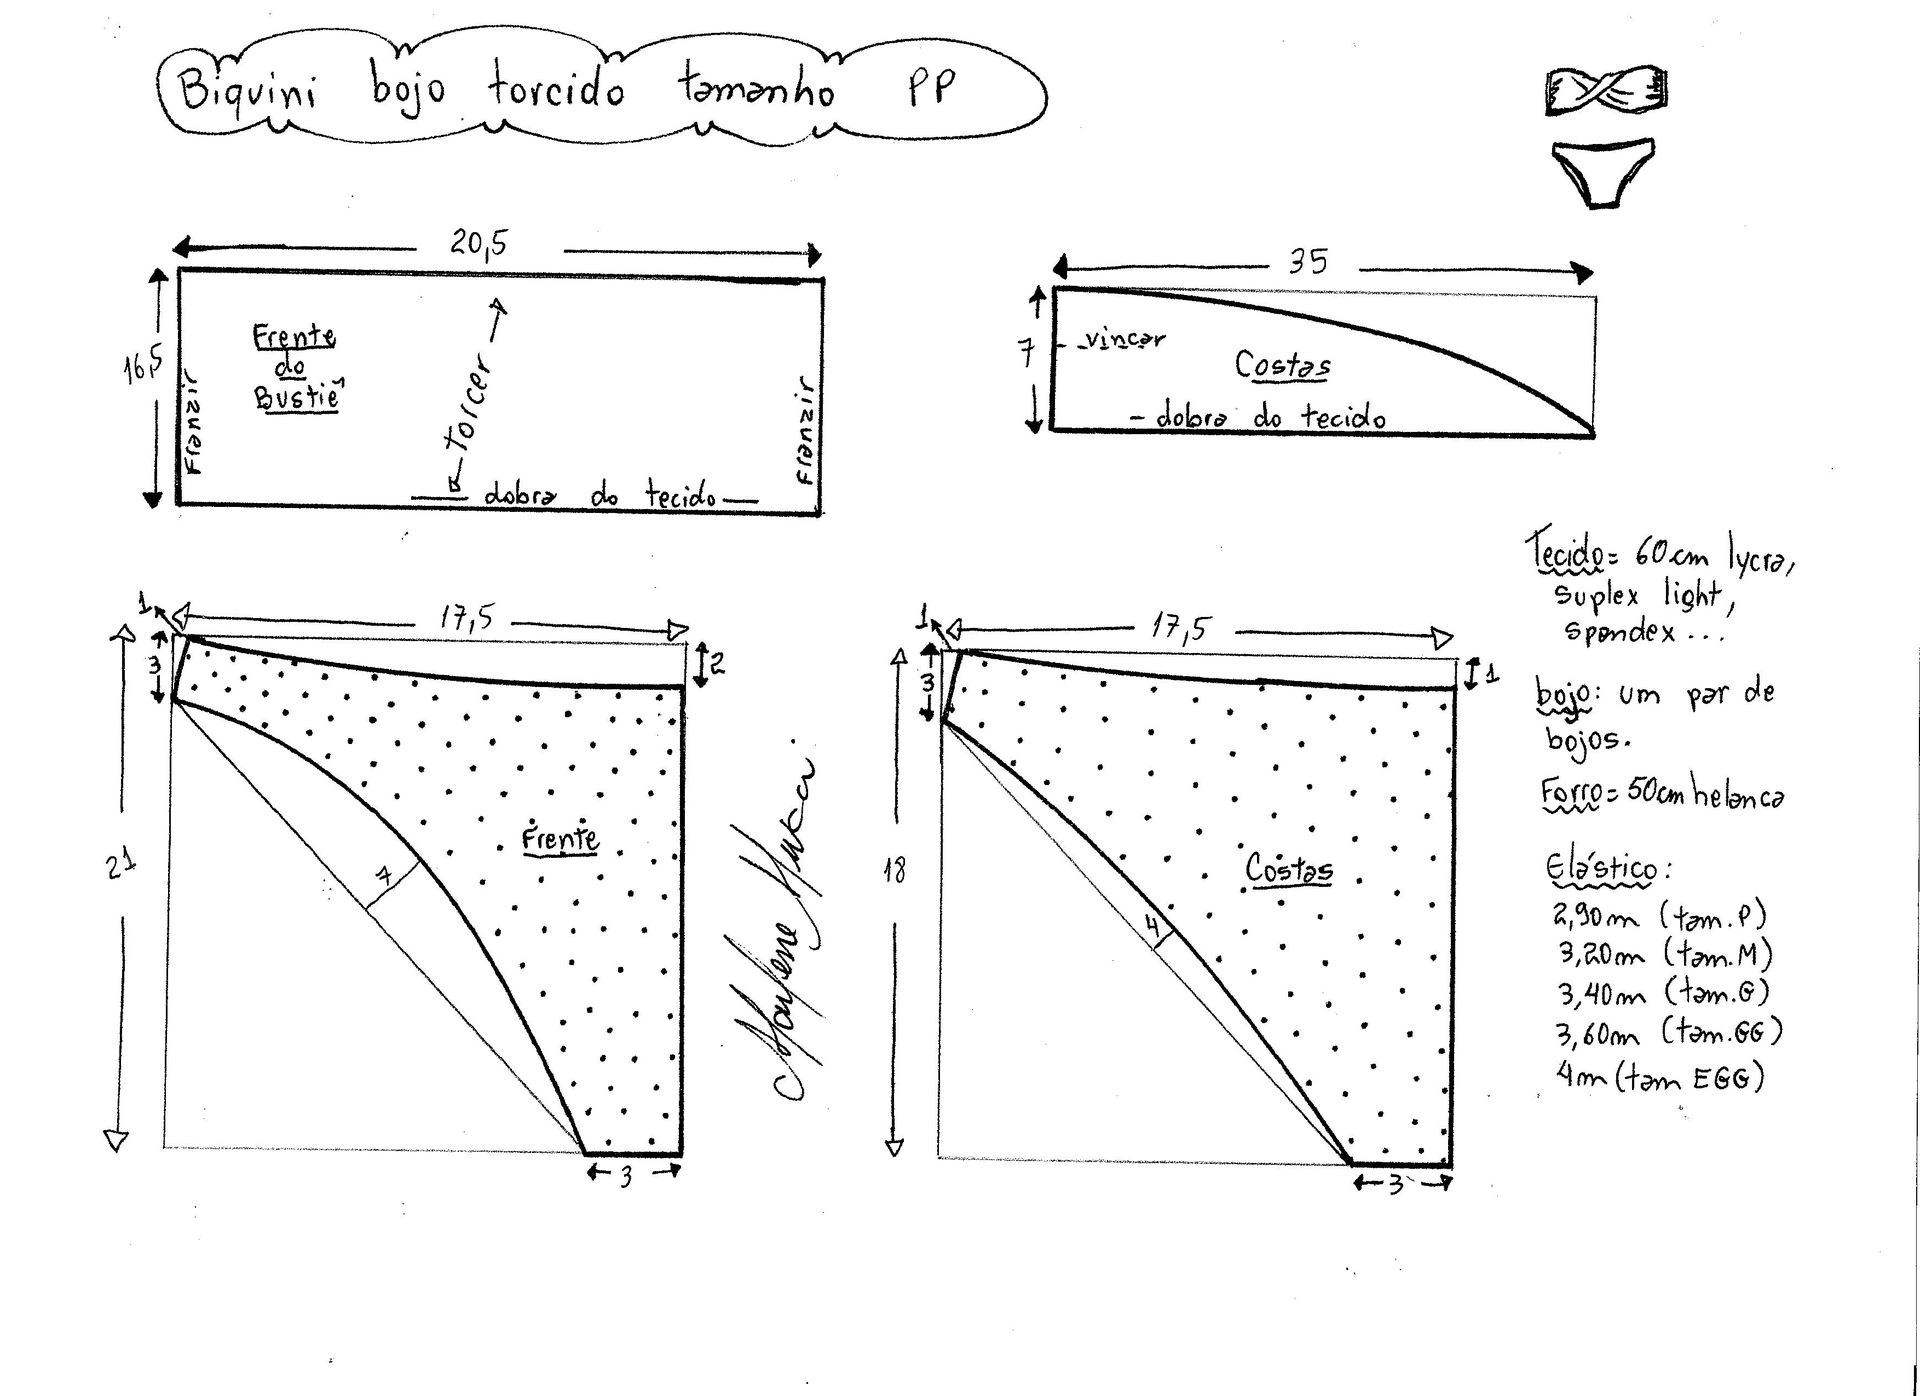 Biquini bojo torcido tamanho PP
20,5
16,5
Franzir
Frente
do
Bustiê
← torcer →
Franzir
— dobra do tecido —
35
7
- - vincar
Costas
- dobra do tecido
1
17,5
3
2
21
7
Frente
3
1
17,5
3
1
18
4
Costas
3
Tecido = 60cm lycra,
suplex light,
spandex...
bojo: um par de
bojos.
Forro = 50cm helanca
Elástico:
2,90m (tam.P)
3,20m (tam.M)
3,40m (tam.G)
3,60m (tam.GG)
4m (tam EGG)